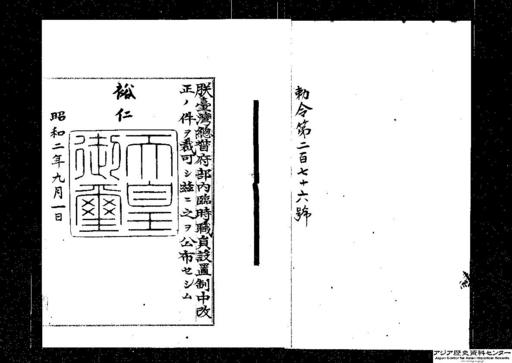 勅令第二百七十六號
朕臺灣總督府部內臨時職員設置制中改
正ノ件ヲ裁可シ茲ニ之ヲ公布セシム
裕仁
天皇
御璽
昭和二年九月一日
アジア歴史資料センター
Japan Center for Asian Historical Records